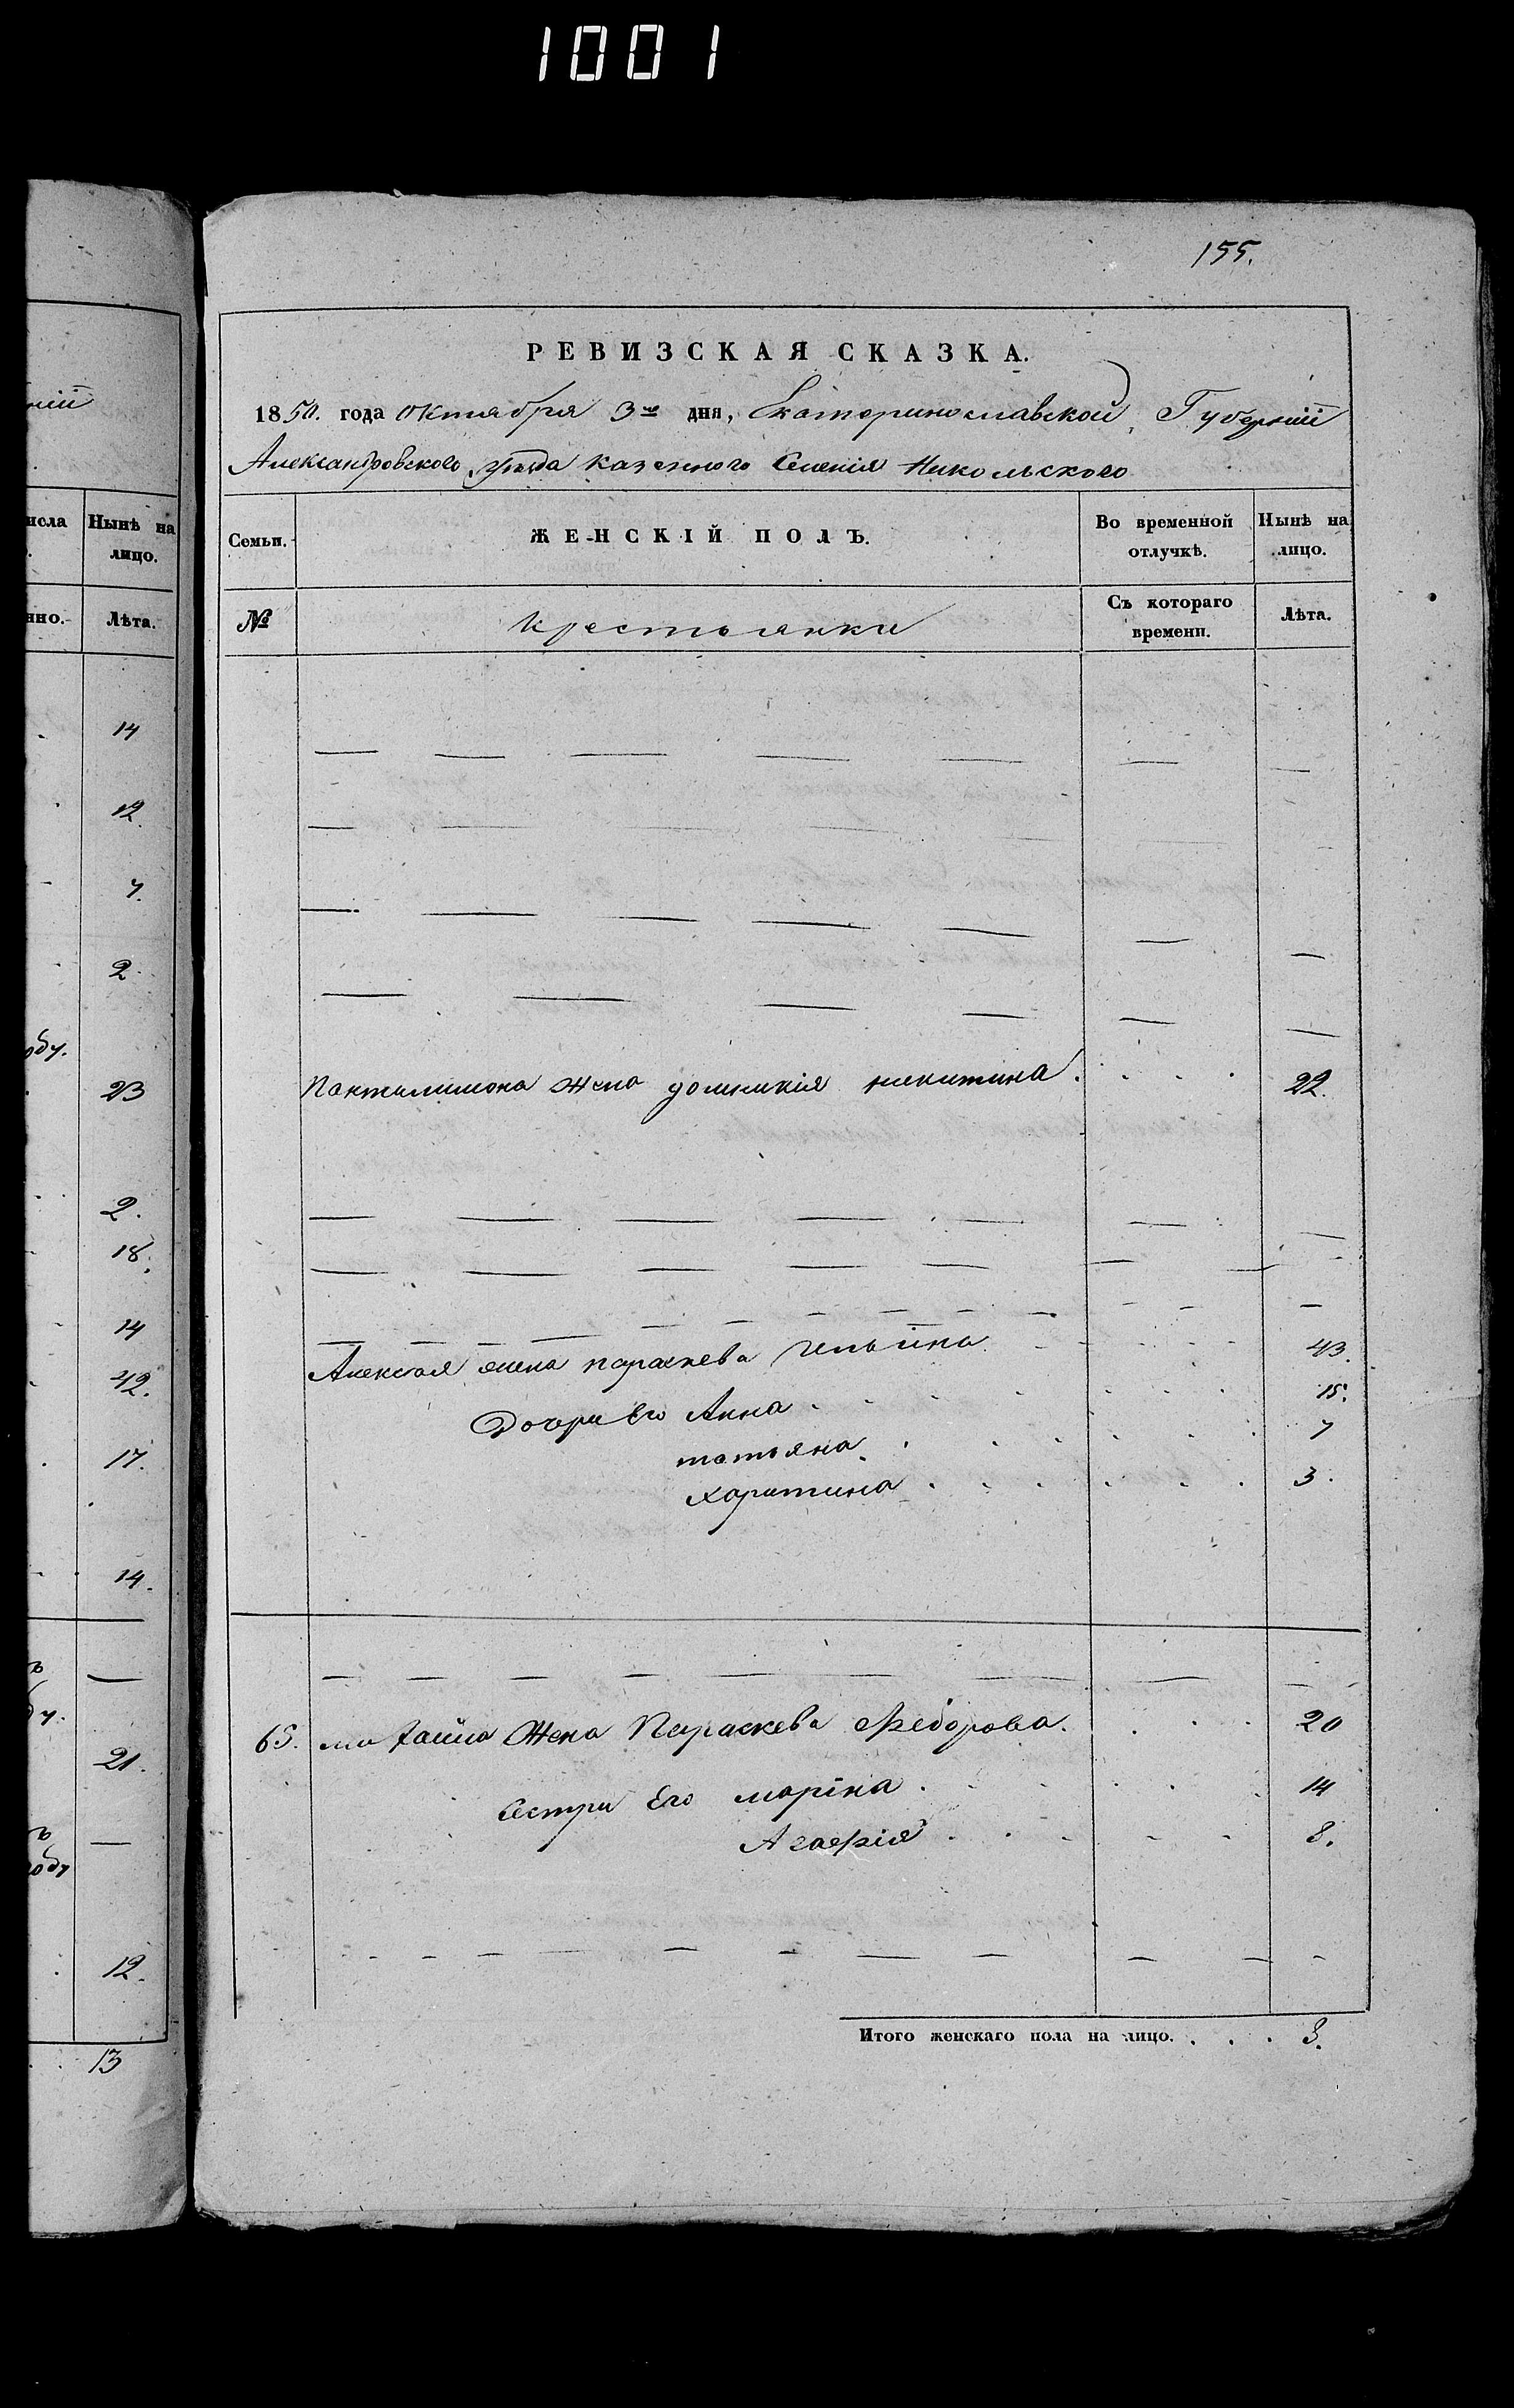 1001
155.
РЕВИЗСКАЯ СКАЗКА.
1850. года октября 3го дня, Екатеринославской Губерніи
Александровского уѣзда казенного Селенія Никольского
Семьи.
ЖЕНСКІЙ ПОЛЪ.
Во временной отлучкѣ.
Нынѣ на лицо.
№
крестьянки
Съ котораго времени.
Лѣта.
Пантилимона жена домникія никитина 22.
Алексея жена параскева Ильина 43.
Дочери Его Анна 15.
татьяна 7
харитина 3.
65. Жена Параскева Федорова. 20
Сестри Его маріна 14
Агафія 8.
Итого женскаго пола на лицо. 8.
ніи
исла
Нынѣ на
лицо.
нно.
Лѣта.
14
12.
7.
2.
обу.
23
2.
18.
14
42.
17.
14.
ъ
бу.
21.
ъ
обу
12.
13